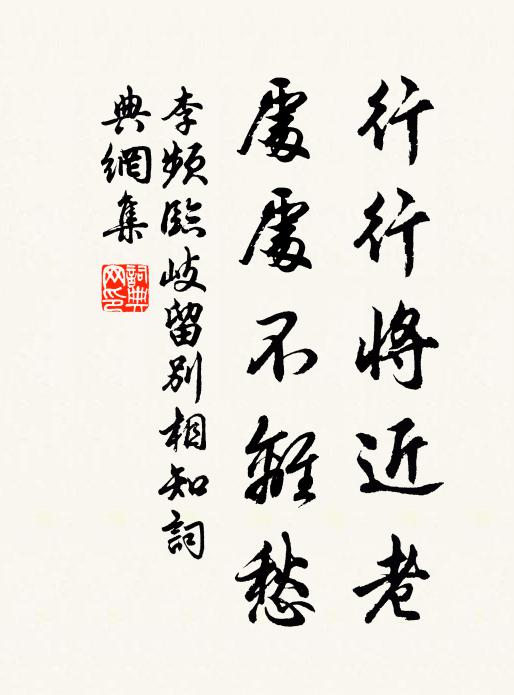 行行將近老
處處不離愁
李頻臨岐留別相知詞
典網集
詞典网印